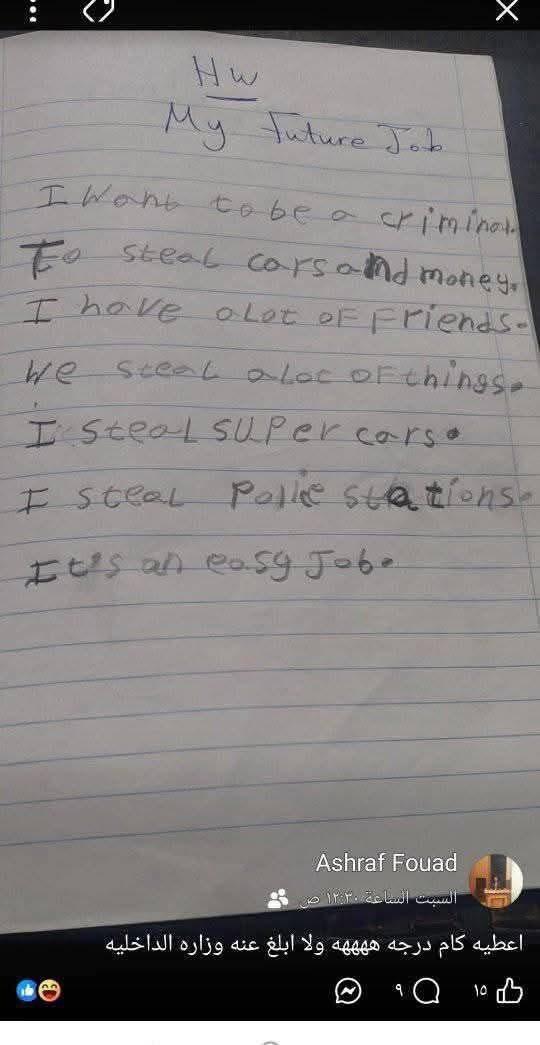 HW
My Future Job
I want to be a criminal.
To steal cars and money.
I have a lot of friends.
We steal a lot of things.
I steal super cars.
I steal Polic stations.
It's an easy Job.
Ashraf Fouad
السبت الساعة ١٢:٣٠ ص
اعطيه كام درجه ههههه ولا ابلغ عنه وزاره الداخليه
٩ ١٥